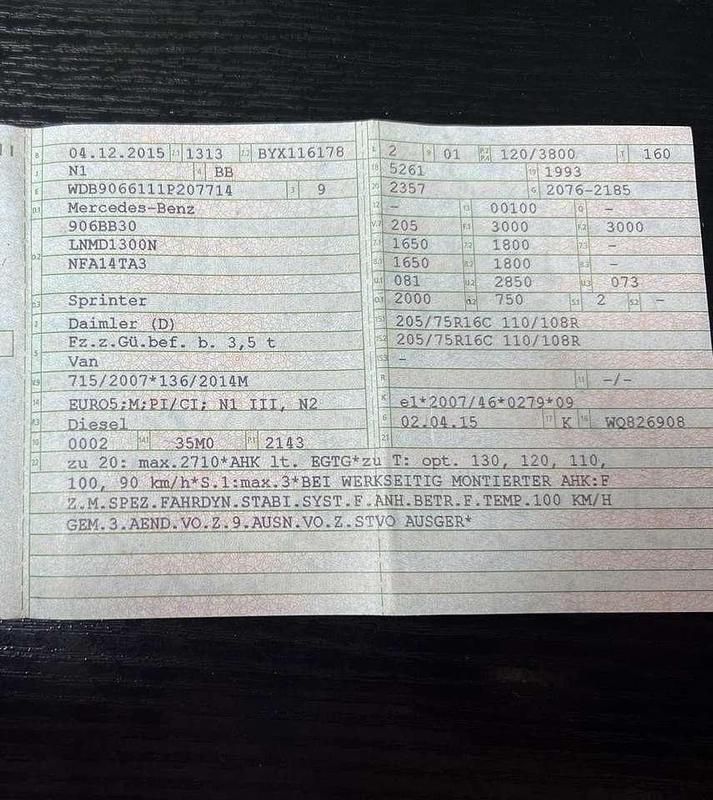 B 04.12.2015 2.1 1313 2.2 BYX116178
J N1 4 BB
E WDB9066111P207714 3 9
D.1 Mercedes-Benz
906BB30
D.2 LNMD1300N
NFA14TA3
D.3 Sprinter
2 Daimler (D)
5 Fz.z.Gü.bef. b. 3,5 t
Van
V.9 715/2007*136/2014M
14 EURO5;M;PI/CI; N1 III, N2
P.3 Diesel
10 0002 14.1 35M0 P.1 2143
L 2 9 01 P.2 P.4 120/3800 T 160
18 5261 19 1993
20 2357 G 2076-2185
12 - 13 00100 Q -
V.7 205 F.1 3000 F.2 3000
7.1 1650 7.2 1800 7.3 -
8.1 1650 8.2 1800 8.3 -
U.1 081 U.2 2850 U.3 073
O.1 2000 O.2 750 S.1 2 S.2 -
15.1 205/75R16C 110/108R
15.2 205/75R16C 110/108R
15.3 -
R 11 -/-
K e1*2007/46*0279*09
6 02.04.15 17 K 16 WQ826908
21
22 zu 20: max.2710*AHK lt. EGTG*zu T: opt. 130, 120, 110,
100, 90 km/h*S.1:max.3*BEI WERKSEITIG MONTIERTER AHK:F
Z.M.SPEZ.FAHRDYN.STABI.SYST.F.ANH.BETR.F.TEMP.100 KM/H
GEM.3.AEND.VO.Z.9.AUSN.VO.Z.STVO AUSGER*